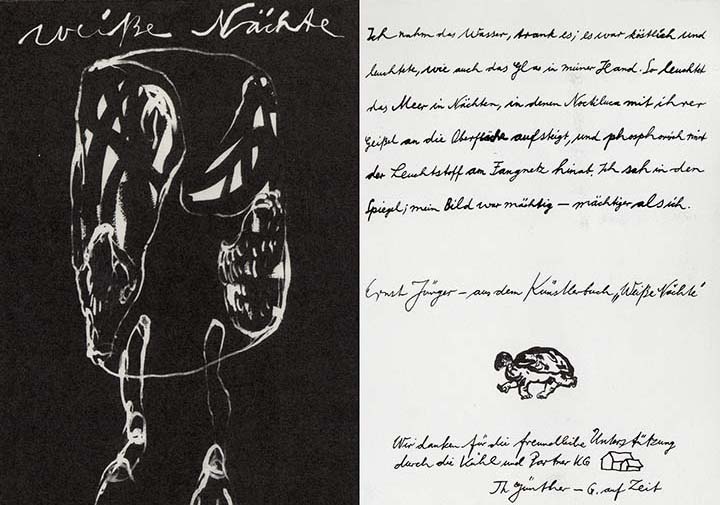 weiße Nächte
Ich nahm das Wasser, trank es; es war köstlich und
leuchtete, wie auch das Glas in meiner Hand. So leuchtet
das Meer in Nächten, in denen Noctiluca mit ihrer
Geißel an die Oberfläche aufsteigt, und phosphorisch rinnt
der Leuchtstoff am Fangnetz hinab. Ich sah in den
Spiegel; mein Bild war mächtig – mächtiger als ich.
Ernst Jünger – aus dem Künstlerbuch „Weiße Nächte“
Wir danken für die freundliche Unterstützung
durch die Kühl und Partner KG
Th Günther – G. auf Zeit